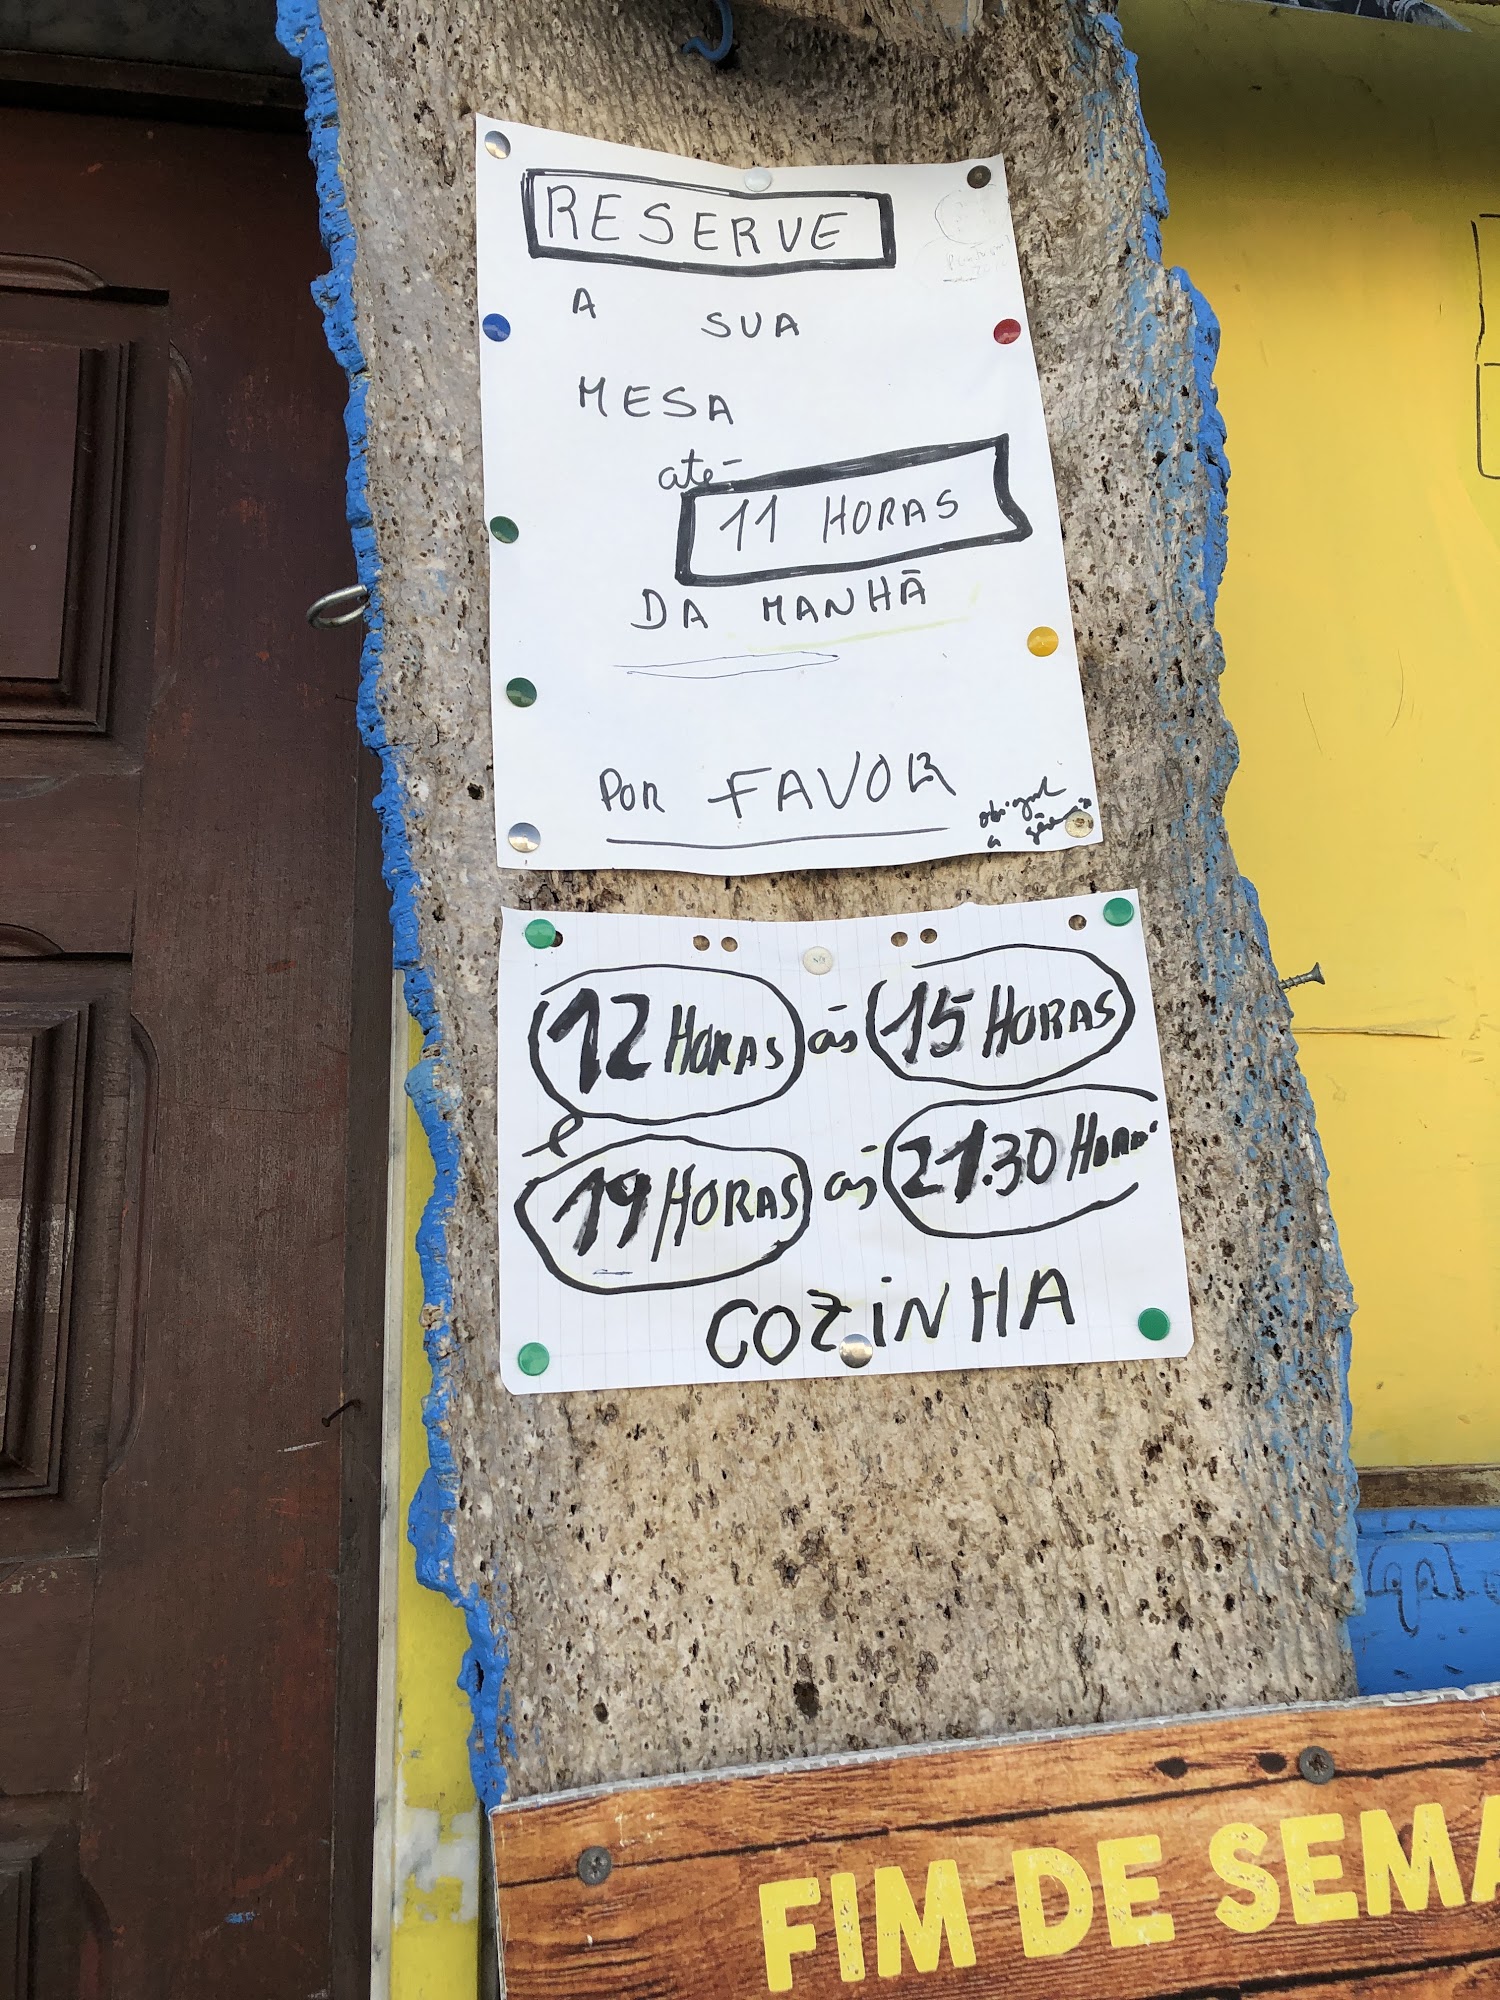 RESERVE
A SUA
MESA
até
11 HORAS
DA MANHÃ
POR FAVOR
a
12 HORAS às 15 HORAS
e
19 HORAS às 21.30 HORAS
COZINHA
FIM DE SEMA